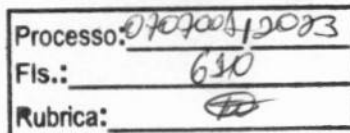 Processo: 0707001/2023
Fls.: 610
Rubrica: